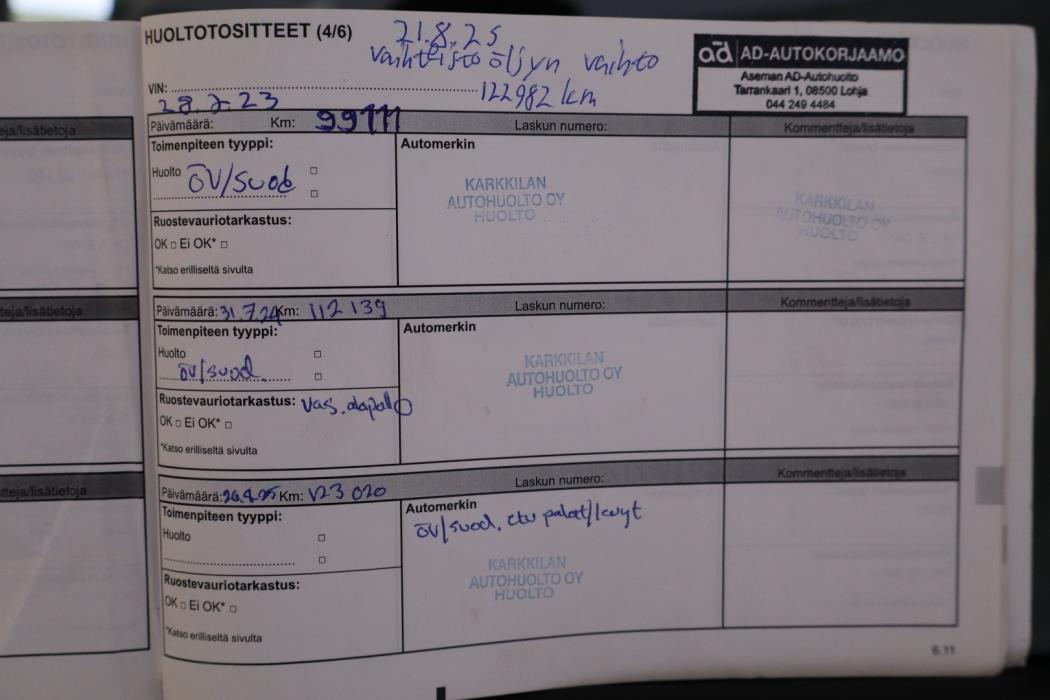 HUOLTOTOSITTEET (4/6)
21.8.25
Vaihteisto öljyn vaihto
VIN:
122982 km
ad AD-AUTOKORJAAMO
Aseman AD-Autohuolto
Tarrankaari 1, 08500 Lohja
044 249 4484
28.7.23
Päivämäärä: Km: 99111 Laskun numero: Kommentteja/lisätietoja
Toimenpiteen tyyppi: Automerkin
Huolto ÖV/suod
KARKKILAN
AUTOHUOLTO OY
HUOLTO
KARKKILAN
AUTOHUOLTO OY
HUOLTO
Ruostevauriotarkastus:
OK Ei OK*
*Katso erilliseltä sivulta
Päivämäärä: 31.7.24 Km: 112 139 Laskun numero: Kommentteja/lisätietoja
Toimenpiteen tyyppi: Automerkin
Huolto
öv/suod.
KARKKILAN
AUTOHUOLTO OY
HUOLTO
Ruostevauriotarkastus: Vas. alapallo
OK Ei OK*
*Katso erilliseltä sivulta
Päivämäärä: Km: 123 020 Laskun numero: Kommentteja/lisätietoja
Toimenpiteen tyyppi: Automerkin
öv/suod. etu palat/levyt
Huolto
KARKKILAN
AUTOHUOLTO OY
HUOLTO
Ruostevauriotarkastus:
OK Ei OK*
*Katso erilliseltä sivulta
6.11